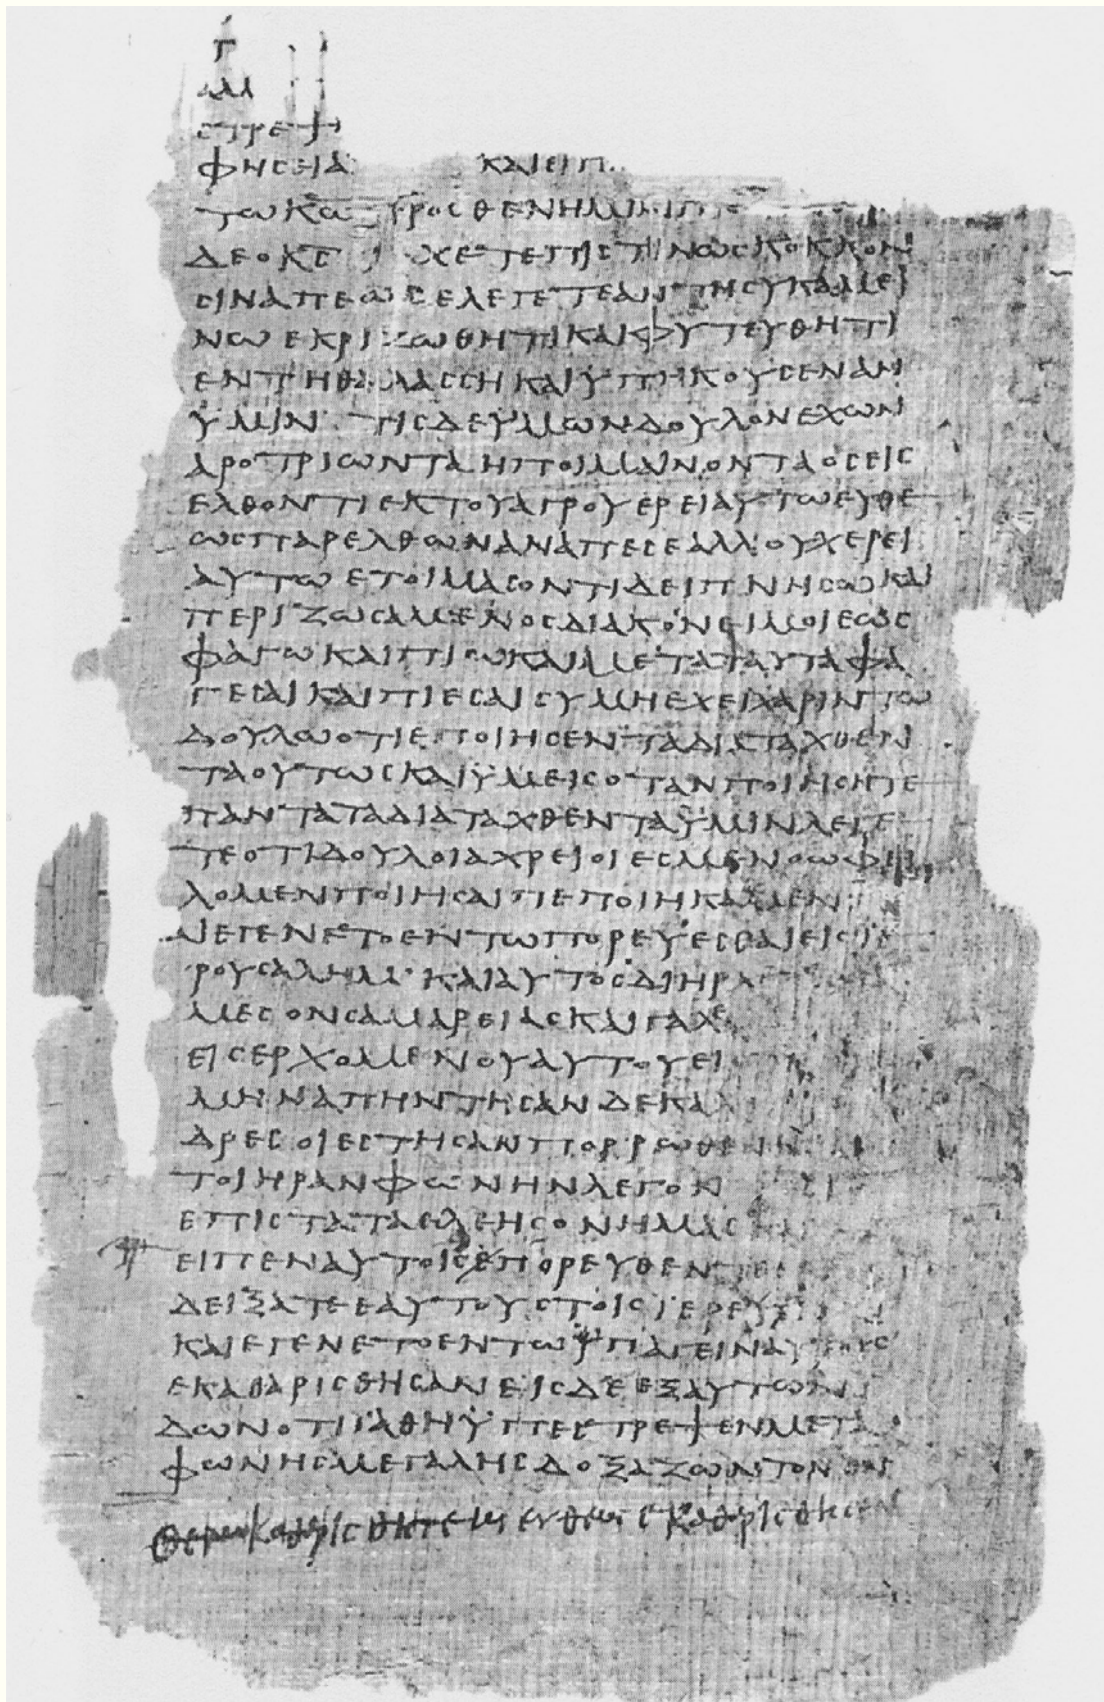 Γ
ΑΛΛ
CΤΡΕΨ
ΦΗCΕΙΑ ΚΑΙΕΙΠ
ΤΩΚΩ ΠΡΟCΘΕCΗΜΙΝΠΙC
ΔΕΟΚC ΕΧΕΤΕΠΙCΤΙΝΩCΚΟΚΚΟΝ
CΙΝΑΠΕΩCΕΛΕΓΕΤΕΑΝΤΗCΥΚΑΜΕΙ
ΝΩΕΚΡΙΖΩΘΗΤΙΚΑΙΦΥΤΕΥΘΗΤΙ
ΕΝΤΗΘΑΛΑCCΗΚΑΙΥΠΗΚΟΥCΕΝΑΝ
ΫΜΙΝ· ΤΙCΔΕΫΜΩΝΔΟΥΛΟΝΕΧΩΝ
ΑΡΟΤΡΙΩΝΤΑΗΠΟΙΜΑΙΝΟΝΤΑΟCΕΙC
ΕΛΘΟΝΤΙΕΚΤΟΥΑΓΡΟΥΕΡΕΙΑΥΤΩΕΥΘΕ
ΩCΠΑΡΕΛΘΩΝΑΝΑΠΕCΕΑΛΛΟΥΧΕΡΕΙ
ΑΥΤΩΕΤΟΙΜΑCΟΝΤΙΔΕΙΠΝΗCΩΚΑΙ
ΠΕΡΙΖΩCΑΜΕΝΟCΔΙΑΚΟΝΕΙΜΟΙΕΩC
ΦΑΓΩΚΑΙΠΙΩΚΑΙΜΕΤΑΤΑΥΤΑΦΑ
ΓΕCΑΙΚΑΙΠΙΕCΑΙCΥΜΗΕΧΕΙΧΑΡΙΝΤΩ
ΔΟΥΛΩΟΤΙΕΠΟΙΗCΕΝΤΑΔΙΑΤΑΧΘΕΝ
ΤΑΟΥΤΩCΚΑΙΫΜΕΙCΟΤΑΝΠΟΙΗCΗΤΕ
ΠΑΝΤΑΤΑΔΙΑΤΑΧΘΕΝΤΑΫΜΙΝΛΕΓΕ
ΤΕΟΤΙΔΟΥΛΟΙΑΧΡΕΙΟΙΕCΜΕΝΟΩΦΕΙ
ΛΟΜΕΝΠΟΙΗCΑΙΠΕΠΟΙΗΚΑΜΕΝ
ΑΙΕΓΕΝΕΤΟΕΝΤΩΠΟΡΕΥΕCΘΑΙΕΙCΙΕ
ΡΟΥCΑΛΗΜ· ΚΑΙΑΥΤΟCΔΙΗΡΧ
ΜΕCΟΝCΑΜΑΡΕΙΑCΚΑΙΓΑΛ
ΕΙCΕΡΧΟΜΕΝΟΥΑΥΤΟΥΕΙ
ΜΗΝΑΠΗΝΤΗCΑΝΔΕΚΑ
ΔΡΕCΟΙΕCΤΗCΑΝΠΟΡΡΩΘΕΝ
ΤΟΙΗΡΑΝΦΩΝΗΝΛΕΓΟΝ
ΕΠΙCΤΑΤΑΕΛΕΗCΟΝΗΜΑC
ΕΙΠΕΝΑΥΤΟΙCΠΟΡΕΥΘΕΝΤΕC
ΔΕΙΞΑΤΕΕΑΥΤΟΥCΤΟΙCΙΕΡΕΥCΙ
ΚΑΙΕΓΕΝΕΤΟΕΝΤΩΫΠΑΓΕΙΝΑΥΤΟΥC
ΕΚΑΘΑΡΙCΘΗCΑΝΕΙCΔΕΕΞΑΥΤΩΝΙ
ΔΩΝΟΤΙΪΑΘΗΫΠΕCΤΡΕΨΕΝΜΕΤΑ
ΦΩΝΗCΜΕΓΑΛΗCΔΟΞΑΖΩΝΤΟΝΘΝ
ΘΕΛΩΚΑΘΑΡΙCΘΗΤΕΚΑΙΕΥΘΕΩCΕΚΑΘΑΡΙCΘΗCΑΝ